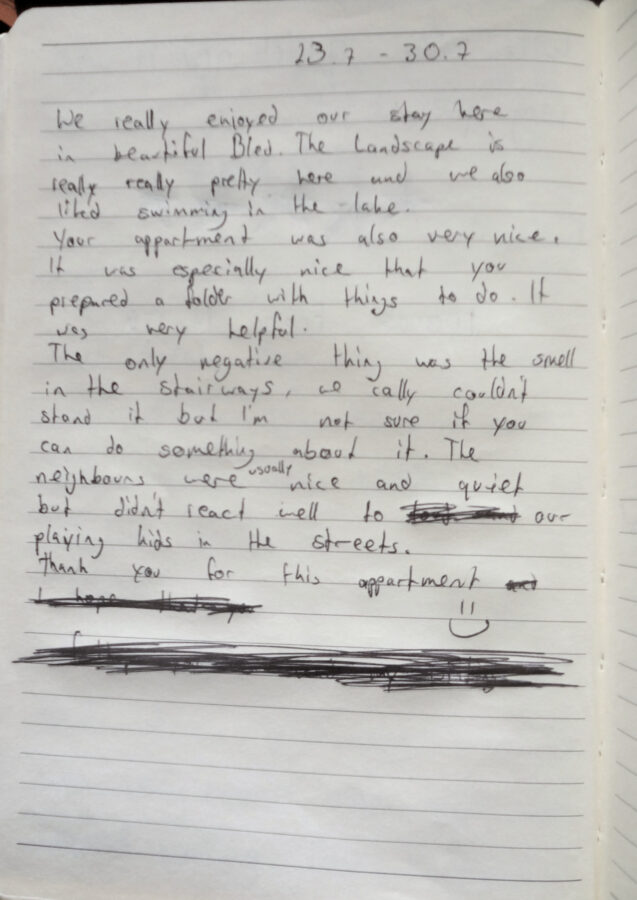 23.7 - 30.7
We really enjoyed our stay here
in beautiful Bled. The Landscape is
really really pretty here and we also
liked swimming in the lake.
Your appartment was also very nice.
It was especially nice that you
prepared a folder with things to do. It
was very helpful.
The only negative thing was the smell
in the stairways, we cally couldn't
stand it but I'm not sure if you
can do something about it. The
neighbours were usually nice and quiet
but didn't react well to our
playing kids in the streets.
Thank you for this appartment